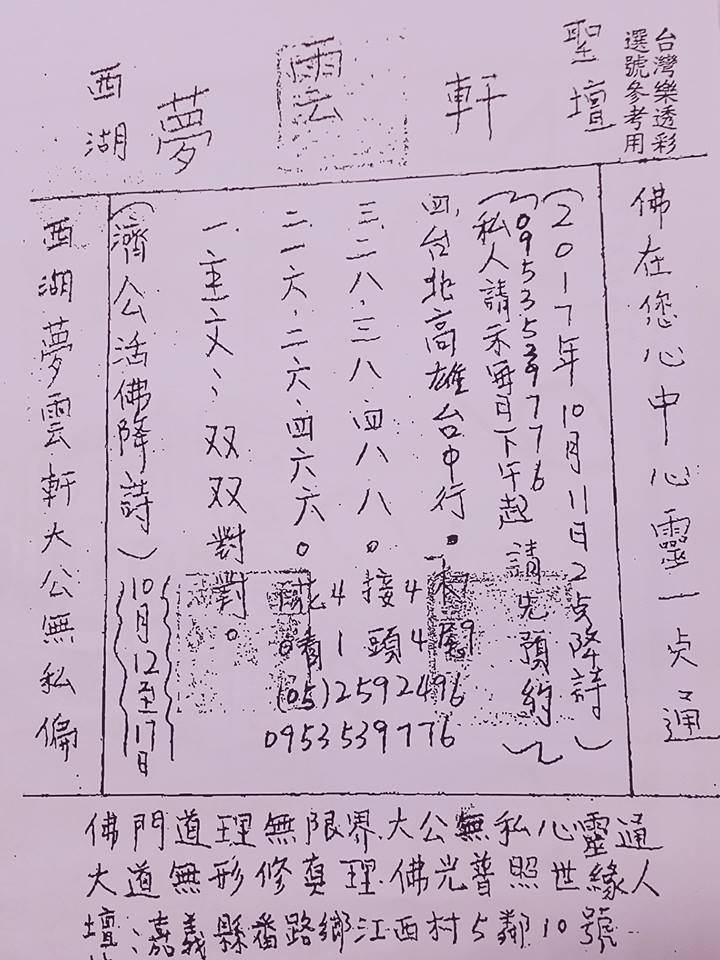 台灣樂透彩
選號參考用
西湖 夢 雲 軒 聖壇
佛在您心中心靈一点通
(2017年10月11日2点降詩)
0953539776
(私人請示每月下午起請先預約)
四、台北高雄台中行.
三、二八、三八、四八八。
二、一六、二六、四六六。
一、主文:双双對對。
4 接 4
1 頭 4 9
(05)2592496
0953539776
(濟公活佛降詩)
10月12至17日
西湖夢雲軒大公無私偏
佛門道理無限界.大公無私心靈通
大道無形修真理.佛光普照世緣人
壇:嘉義縣番路鄉江西村5鄰10號